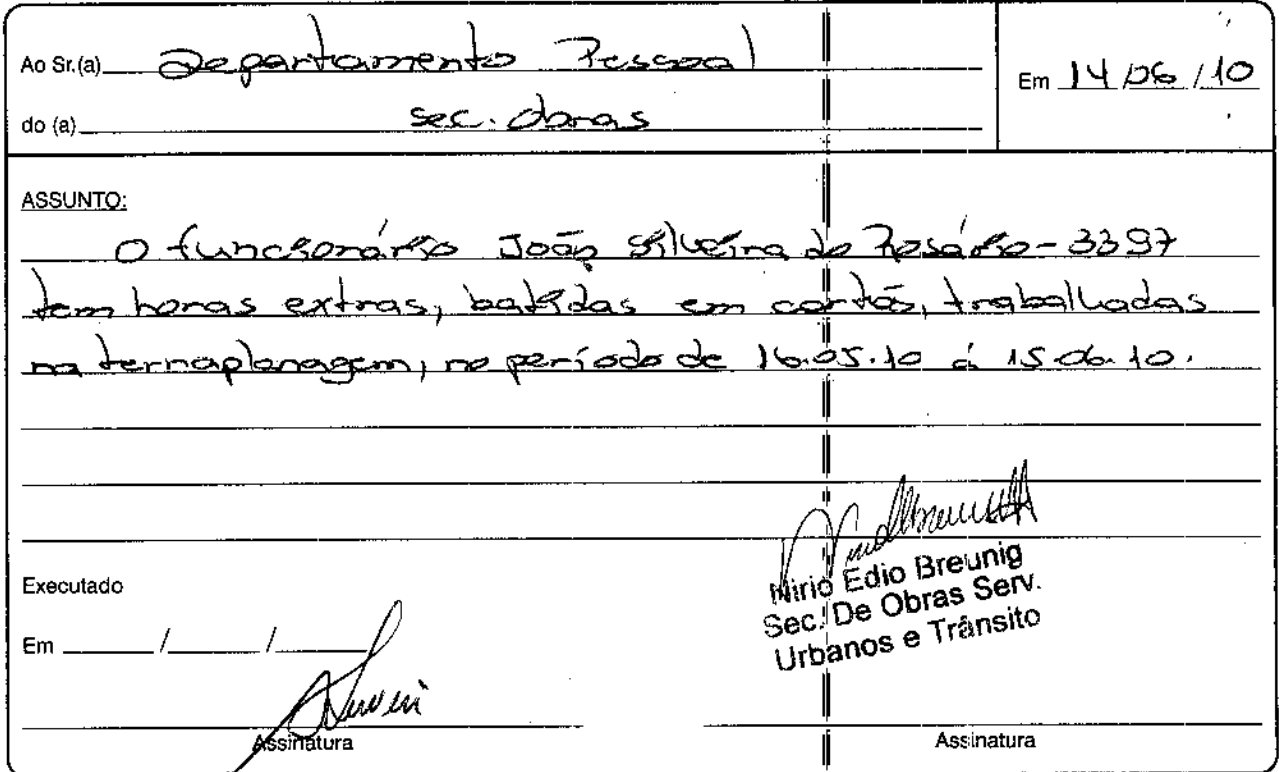 Ao Sr.(a) Departamento Pessoal
Em 14/06/10
do (a) sec. obras
ASSUNTO:
O funcionário João Silveira do Rosário - 3397
tem horas extras, batidas em cartão, trabalhadas
na terraplanagem, no período de 16.05.10 á 15.06.10.
Executado
Em ____/____/____
Nirio Edio Breunig
Sec. De Obras Serv.
Urbanos e Trânsito
Assinatura
Assinatura